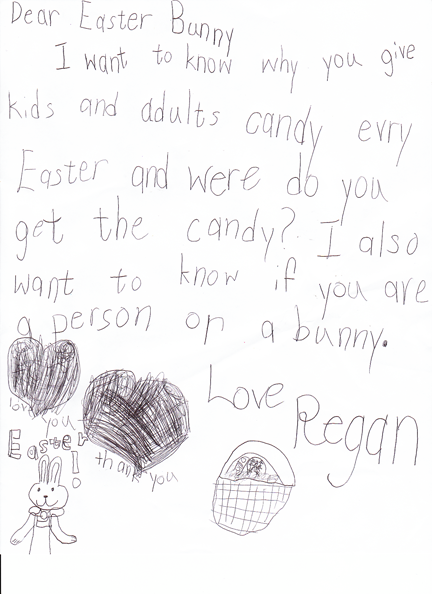 Dear Easter Bunny
I want to know why you give
kids and adults candy evry
Easter and were do you
get the candy? I also
want to know if you are
a person or a bunny.
Love
Regan
love you
Easter!
thank you